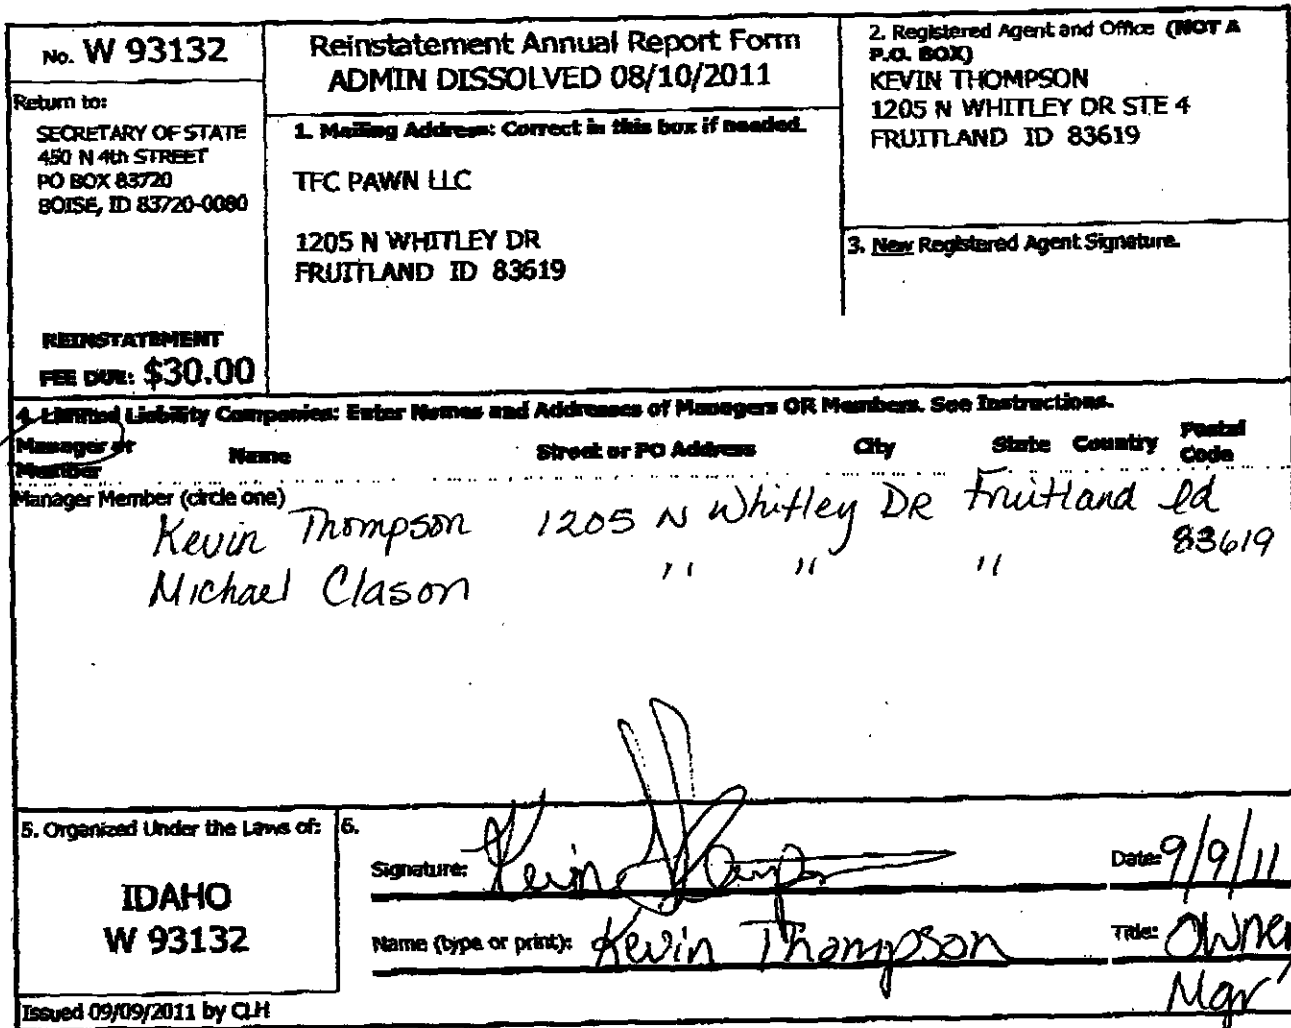 No. W 93132
Return to:
SECRETARY OF STATE
450 N 4th STREET
PO BOX 83720
BOISE, ID 83720-0080
REINSTATEMENT
FEE DUE: $30.00
Reinstatement Annual Report Form
ADMIN DISSOLVED 08/10/2011
1. Mailing Address: Correct in this box if needed.
TFC PAWN LLC
1205 N WHITLEY DR
FRUITLAND ID 83619
2. Registered Agent and Office (NOT A
P.O. BOX)
KEVIN THOMPSON
1205 N WHITLEY DR STE 4
FRUITLAND ID 83619
3. New Registered Agent Signature.
4. Limited Liability Companies: Enter Names and Addresses of Managers OR Members. See Instructions.
Manager or Member Name Street or PO Address City State Country Postal Code
Manager Member (circle one)
Kevin Thompson 1205 N Whitley DR Fruitland Id
83619
Michael Clason " " "
5. Organized Under the Laws of:
IDAHO
W 93132
Issued 09/09/2011 by CLH
6.
Signature: Kevin Thompson Date: 9/9/11
Name (type or print): Kevin Thompson Title: Owner
Mgr